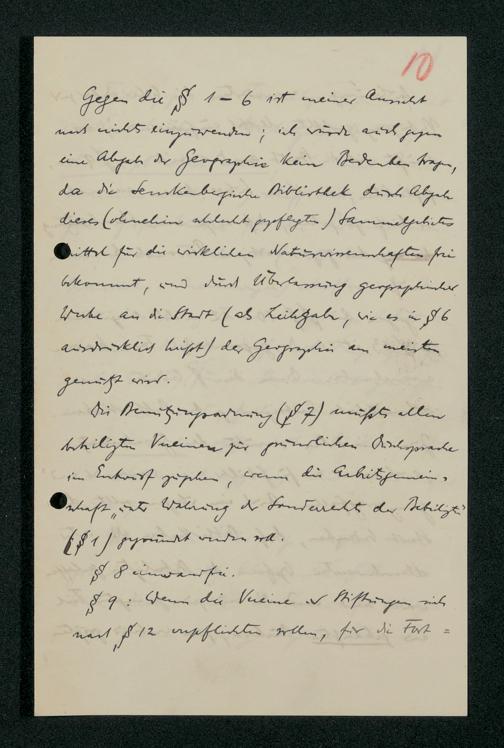 10
Gegen die §§ 1–6 ist meiner Ansicht
nach nichts einzuwenden; ich würde auch gegen
eine Abgabe der Geographie kein Bedenken tragen,
da die Senckenbergische Bibliothek durch Abgabe
dieses (ohnehin schlecht gepflegten) Sammelgebietes
Mittel für die wirklichen Naturwissenschaften frei
bekommt, und durch Überlassung geographischer
Werke an die Stadt (als Leihgabe, wie es in § 6
ausdrücklich heißt) der Geographie am meisten
genützt wird.
Die Benützungsordnung (§ 7) müßte allen
beteiligten Vereinen zur gründlichen Durchsprache
im Entwurf zugehen, wenn die Arbeitsgemein-
schaft „unter Wahrung der Sonderrechte der Beteiligten"
(§ 1) gegründet werden soll.
§ 8 einwandfrei.
§ 9: Wenn die Vereine u Stiftungen sich
nach § 12 verpflichten sollen, für die Fort =